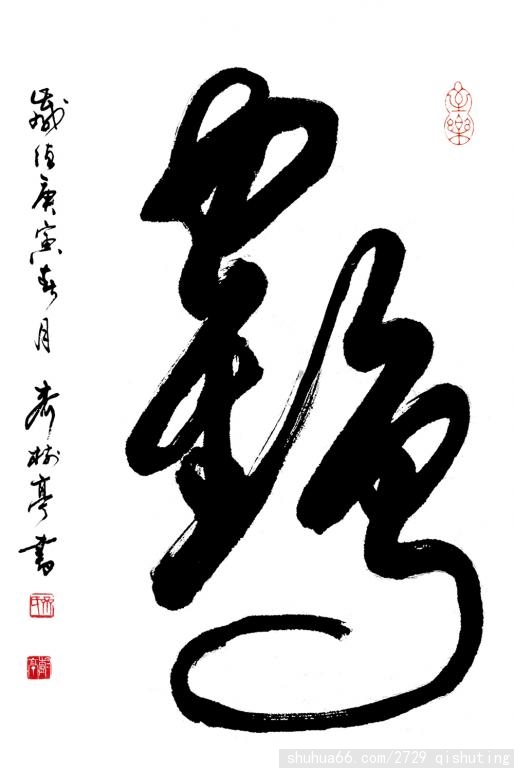 鶴
歲值庚寅春月 齐树亭書
shuhua66.com/2729 qishuting